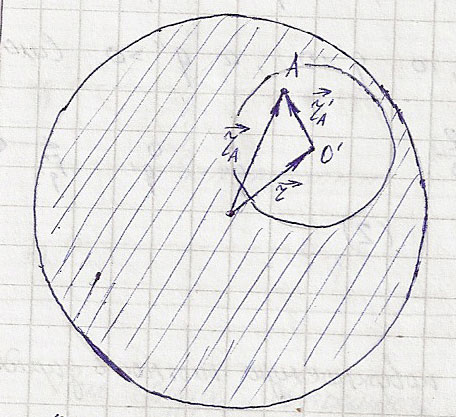 A
r⃗'A
r⃗A
O'
r⃗